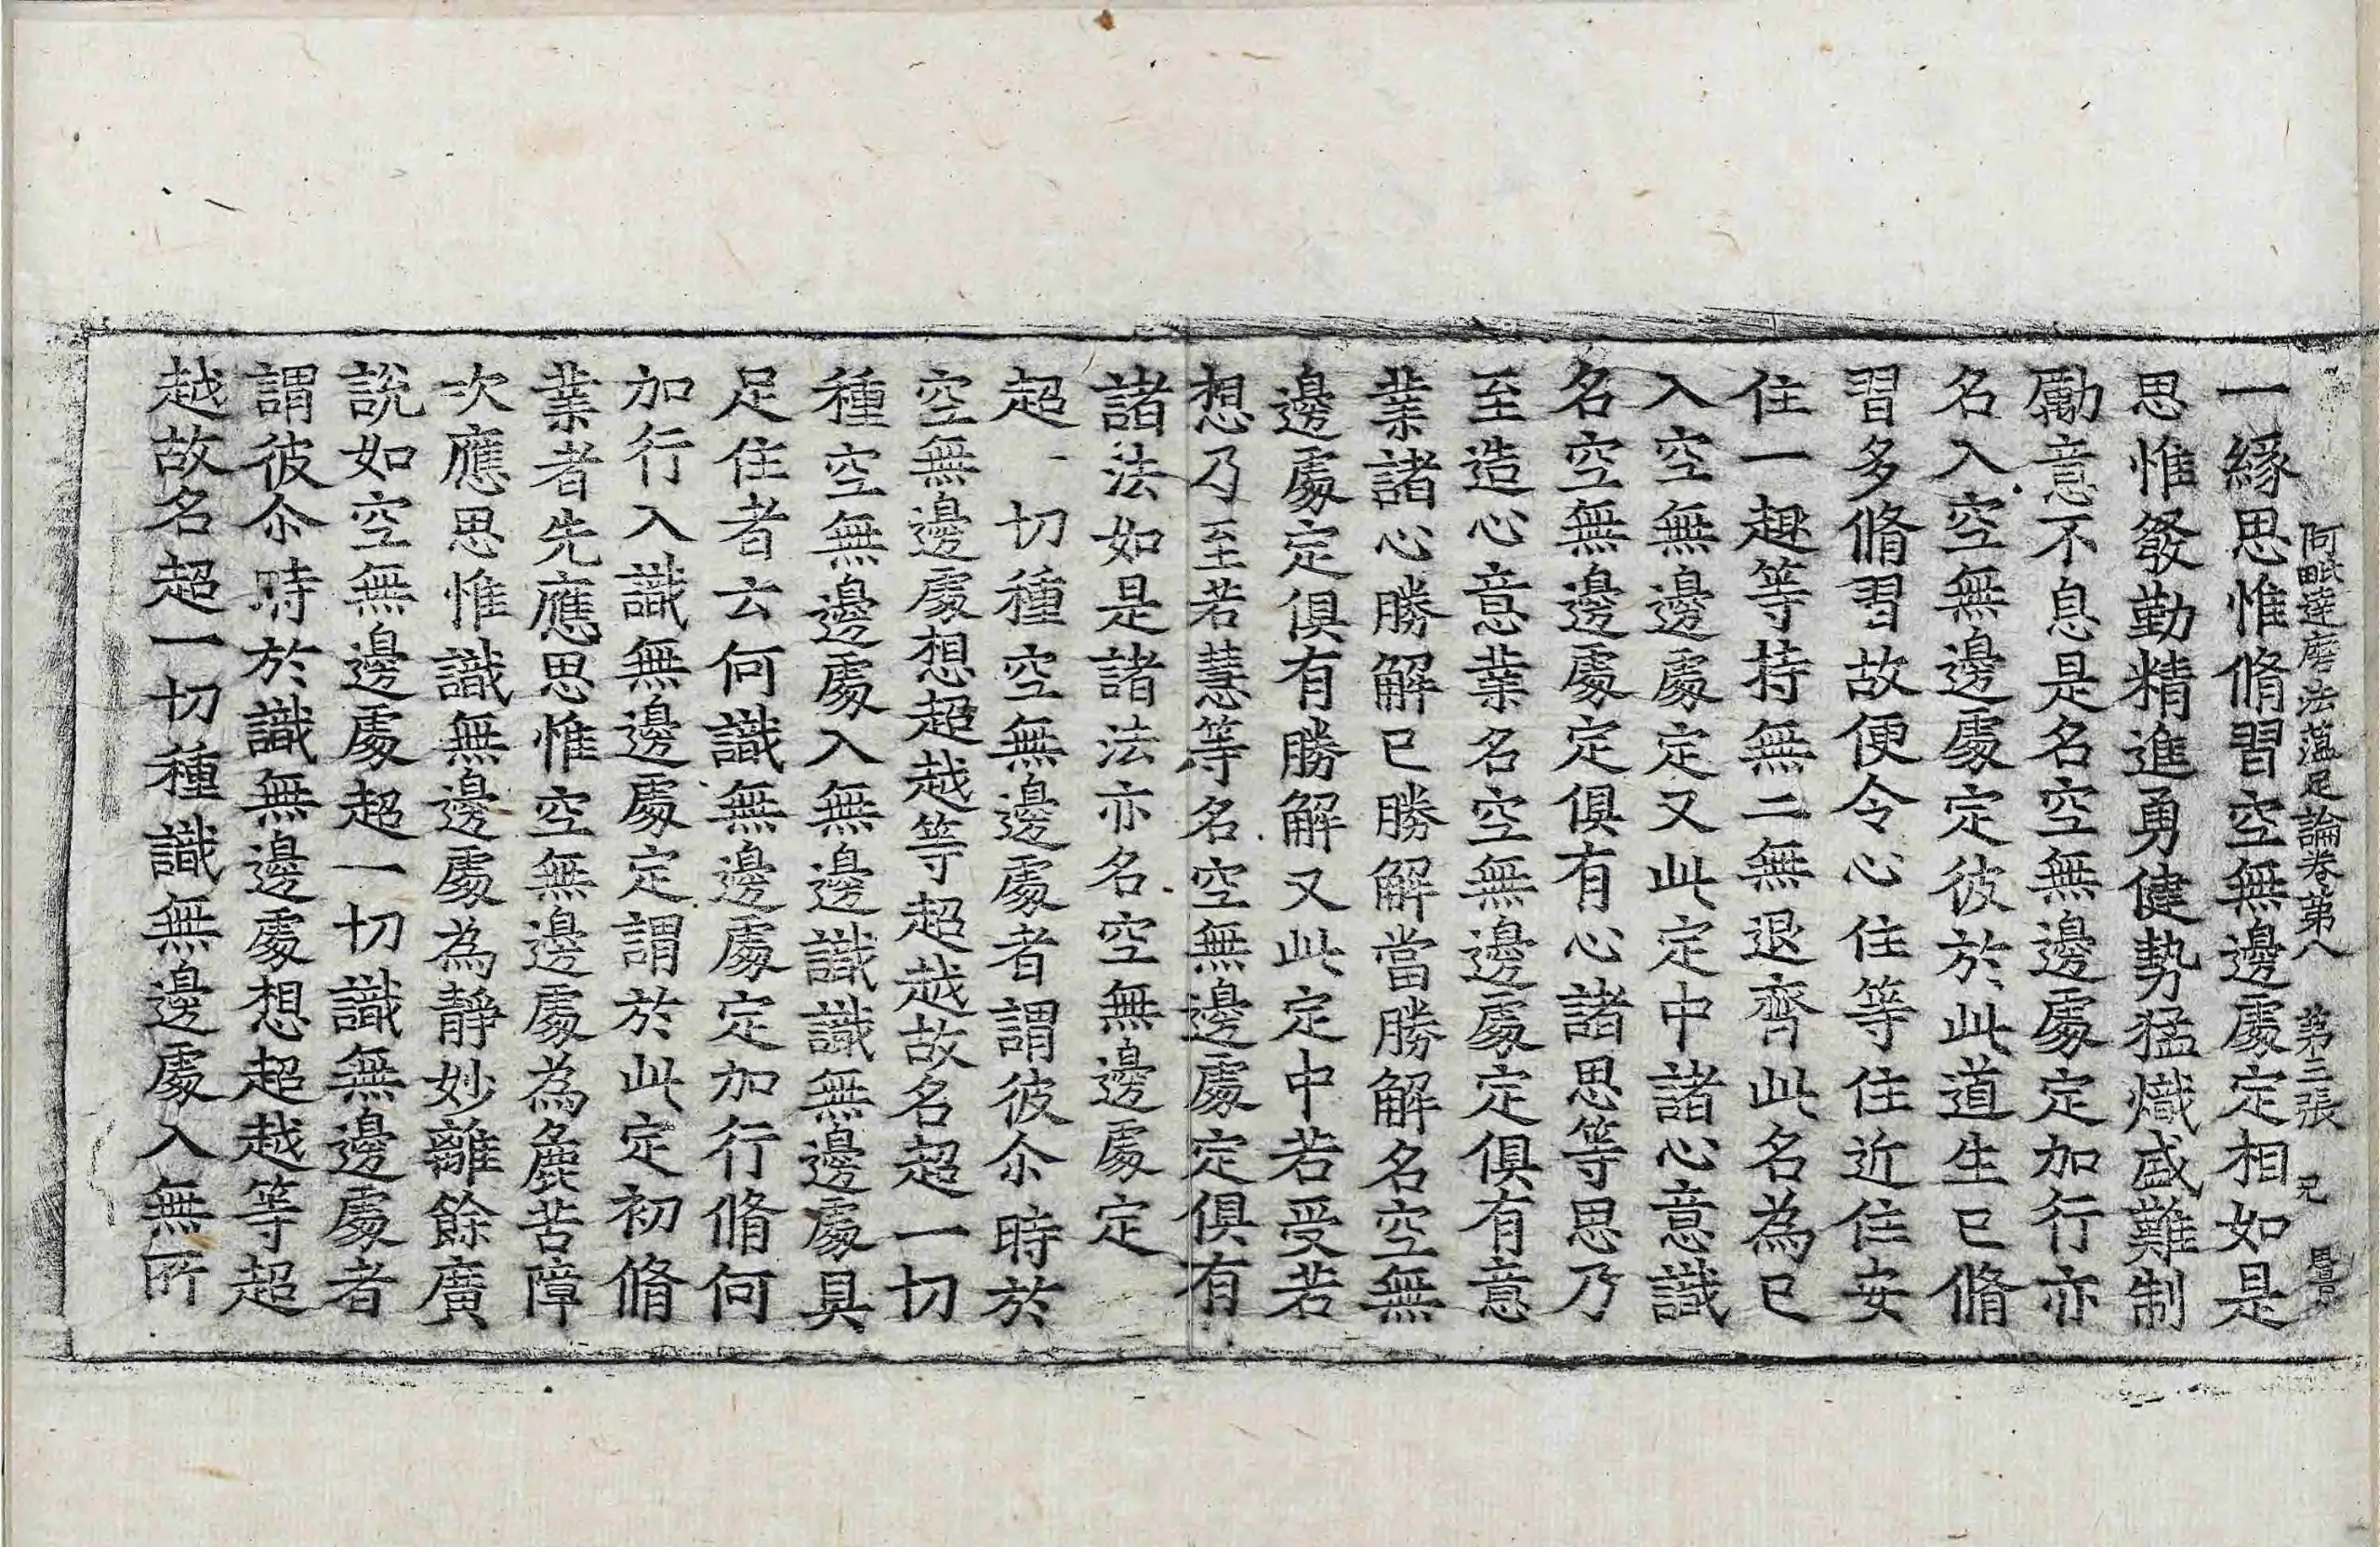 阿毗達磨法蘊足論卷第八　第三張　兄
一緣思惟脩習空無邊處定相如是
思惟發勤精進勇健勢猛熾盛難制
勵意不息是名空無邊處定加行亦
名入空無邊處定彼於此道生已脩
習多脩習故便令心住等住近住安
住一趣等持無二無退齊此名為已
入空無邊處定又此定中諸心意識
名空無邊處定俱有心諸思等思乃
至造心意業名空無邊處定俱有意
業諸心勝解已勝解當勝解名空無
邊處定俱有勝解又此定中若受若
想乃至若慧等名空無邊處定俱有
諸法如是諸法亦名空無邊處定
超一切種空無邊處者謂彼尒時於
空無邊處想超越等超越故名超一切
種空無邊處入無邊識識無邊處具
足住者云何識無邊處定加行脩何
加行入識無邊處定謂於此定初脩
業者先應思惟空無邊處為麁苦障
次應思惟識無邊處為靜妙離餘廣
說如空無邊處超一切識無邊處者
謂彼尒時於識無邊處想超越等超
越故名超一切種識無邊處入無所